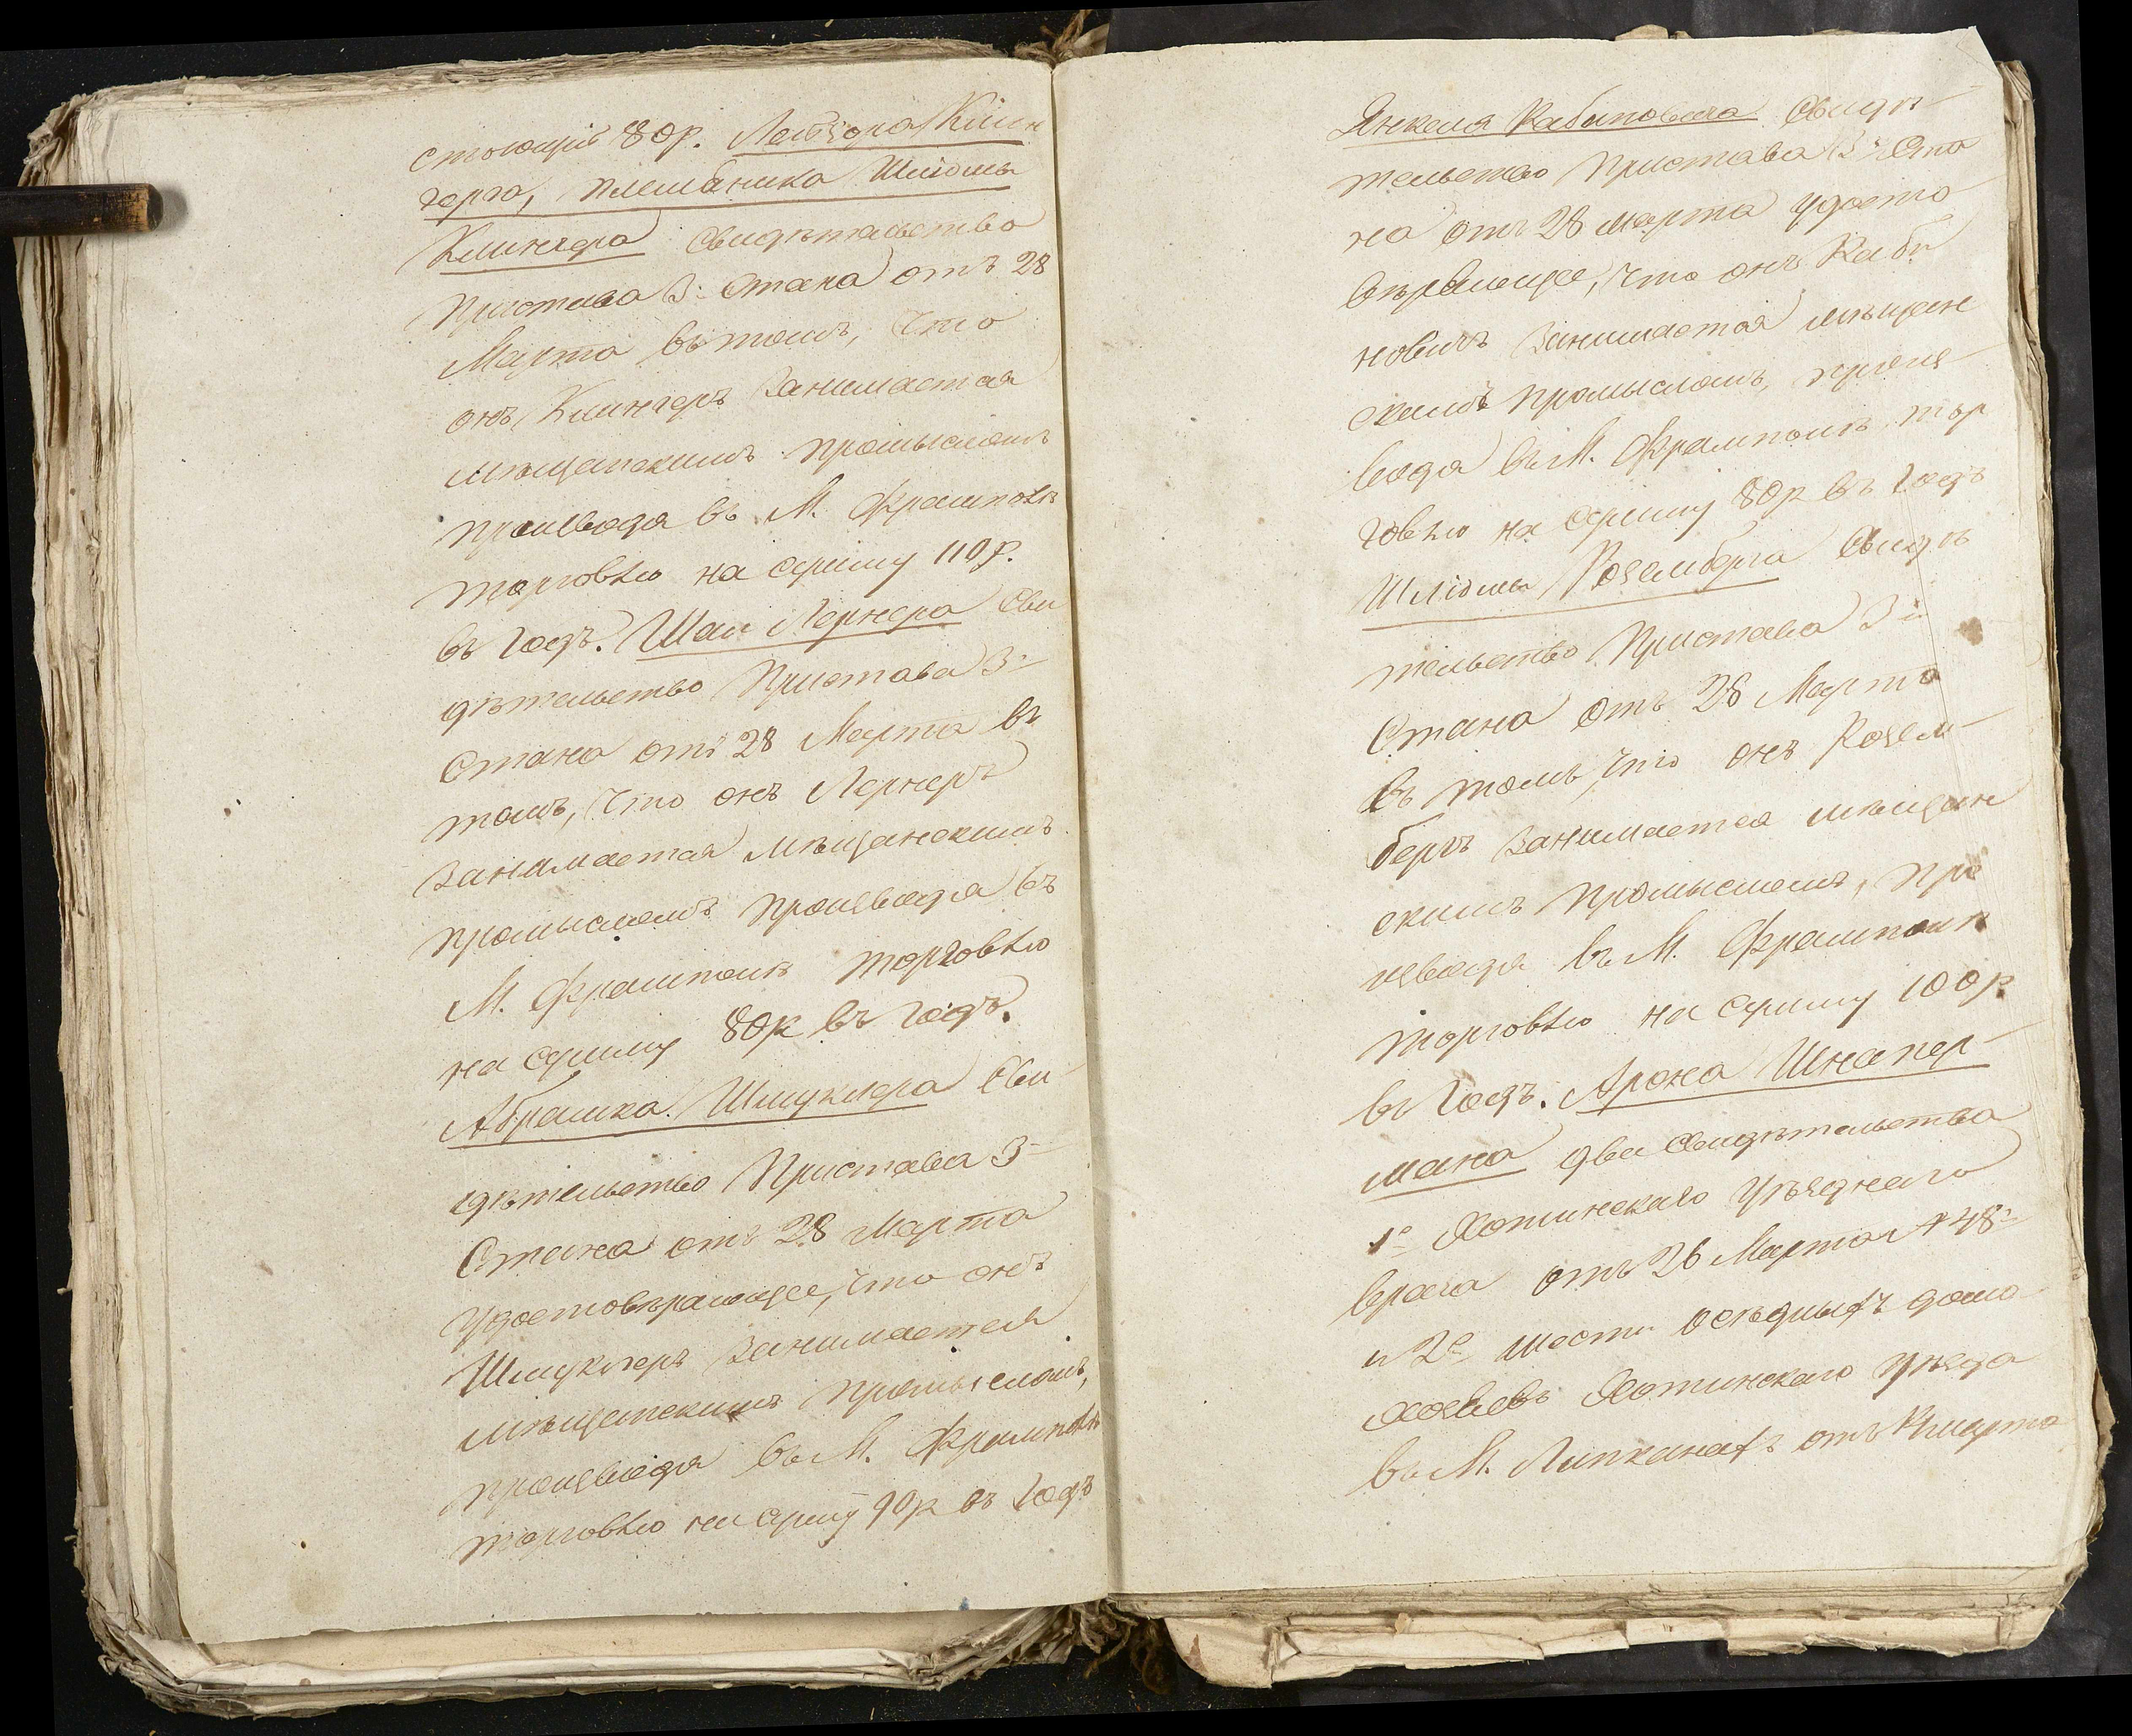 стоющій 80 р. Лейзора Клин
гера, племяника Шліомы
Клингера Свидѣтельство
Пристава 3: Стана отъ 28
Марта въ томъ, что
онъ Клингеръ занимается
мѣщанскимъ промысломъ
производя въ М. Фрамполѣ
торговлю на сумму 110 р.
въ годъ. Шаи Лернера Сви
дѣтельство Пристава 3-
Стана отъ 28 Марта въ
томъ, что онъ Лернеръ
занимается мѣщанскимъ
промысломъ производя въ
М. Фрамполѣ торговлю
на сумму 80 р въ годъ.
Абрамка Шмуклера Сви-
дѣтельство Пристава 3-
Стана отъ 28 Марта
удостовѣряющее, что онъ
Шмуклеръ занимается
мѣщанскимъ промысломъ,
производя въ М. Фрамполѣ
торговлю на сумму 90 р въ годъ
Янкеля Рабиновича Свидѣ-
тельство Пристава 3: Ста
на отъ 28 марта удосто
вѣряющее, что онъ Раби
новичъ занимается мѣщан
скимъ промысломъ, произ-
водя въ М. Фрамполѣ тор
говлю на сумму 80 р въ годъ
Шліомы Роземберга Свидѣ
тельство Пристава 3:
Стана отъ 28 Марта
въ томъ, что онъ Розем-
бергъ занимается мѣщан
скимъ промысломъ, про
изводя въ М. Фрамполѣ
торговлю на сумму 100 р.
въ годъ. Арона Шнапер-
мана два свидѣтельства
1е Хотинскаго уѣзднаго
врача отъ 26 Марта № 48:
и 2е шести осѣдлыхъ домо
хозяевъ Хотинскаго уѣзда
въ М. Липканахъ отъ марта